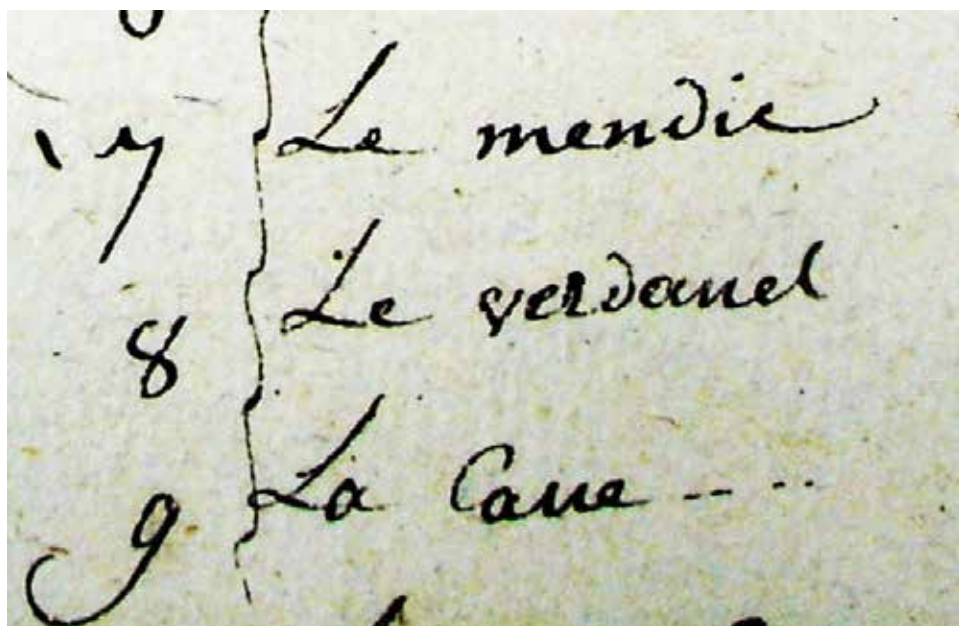 7 Le mendic
8 Le verdanel
9 La Caue ....